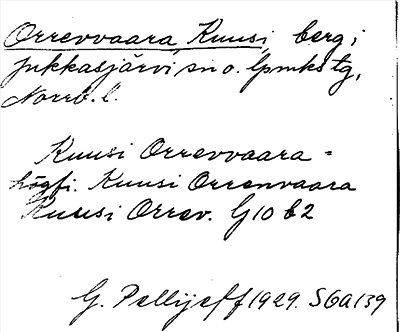 Orrevvaara, Kuusi, berg i
Jukkasjärvi sn o. lpmks tg,
Norrb. l.
Kuusi Orrevvaara =
högfi. Kuusi Orrenvaara
Kuusi Orrev. G10 b2
G. Pellijeff 1929. SOA 139